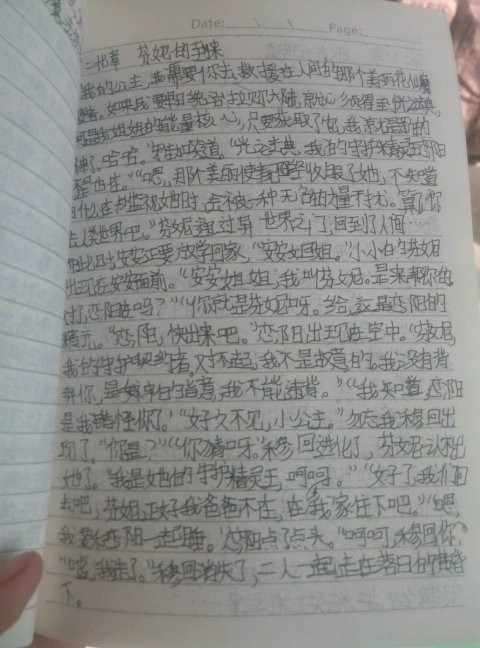 Date: \ \ Page:
二十七章 芬妮的到来
我的公主,我需要你去救援在人间的那个美丽花仙
如果我要用统治拉贝尔大陆,就必须得到光之古典,
可是我姐姐的能量核心,只要获取了它,我就是
神了。哈哈。"光之古典,我的守护精灵恋阳
也在。""嗯,那个美丽使者已经收服了她,不知道
什么在监视她时,会被一种无名的力量打扰。算了你
去人类世界吧。"芬妮穿过异世界之门,回到了人间
安安正要放学回家,"安安姐姐。"小小的芬妮
出现在安安面前。"安安姐姐,我叫芬妮。是来帮你的
对了恋阳在吗?""你就是芬妮呀。给,这是恋阳的
精元。""恋阳,快出来吧。"恋阳出现在空中。"芬妮
我的守护契约者。对不起,我不是故意的。我没有背
弃你,是的旨意,我不能违背。""我知道,恋阳
是我错怪你了。""好久不见,小公主。"勿忘我穆回出
现了。"你是?""你猜呀。"穆回进化了,芬妮认不出
她了。"我是她的守护精灵王,呵呵。""好了,我们回
去吧,芬妮,正好我爸爸不在,在我家住下吧。""嗯,
我要和恋阳一起睡。"恋阳点了点头。"呵呵,穆回你?"
"嗯,我走了。"穆回消失了,二人一起走在落日的黄昏
下。